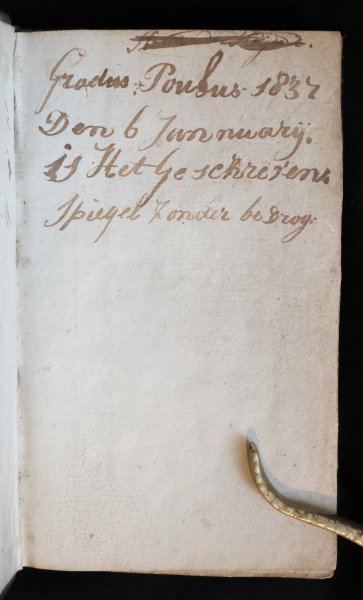 Gradus Poulus 1837
Den 6 Junnuarij.
is Het Geschreven.
Spiegel Zonder bedrog.